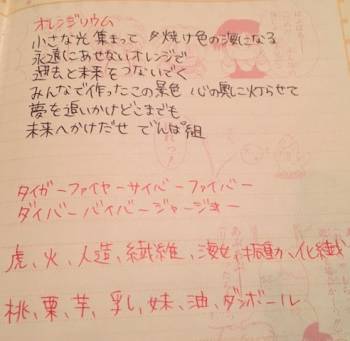 オレンジリウム
小さな光 集まって 夕焼け色の海になる
永遠にあせないオレンジで
過去と未来をつないでく
みんなで作ったこの景色 心の奥に灯らせて
夢を追いかけどこまでも
未来へかけだせ でんぱ組
タイガーファイヤーサイバーファイバー
ダイバーバイバージャージャー
虎、火、人造、繊維、海女、振動、化繊
桃、栗、芋、乳、妹、油、ダンボール